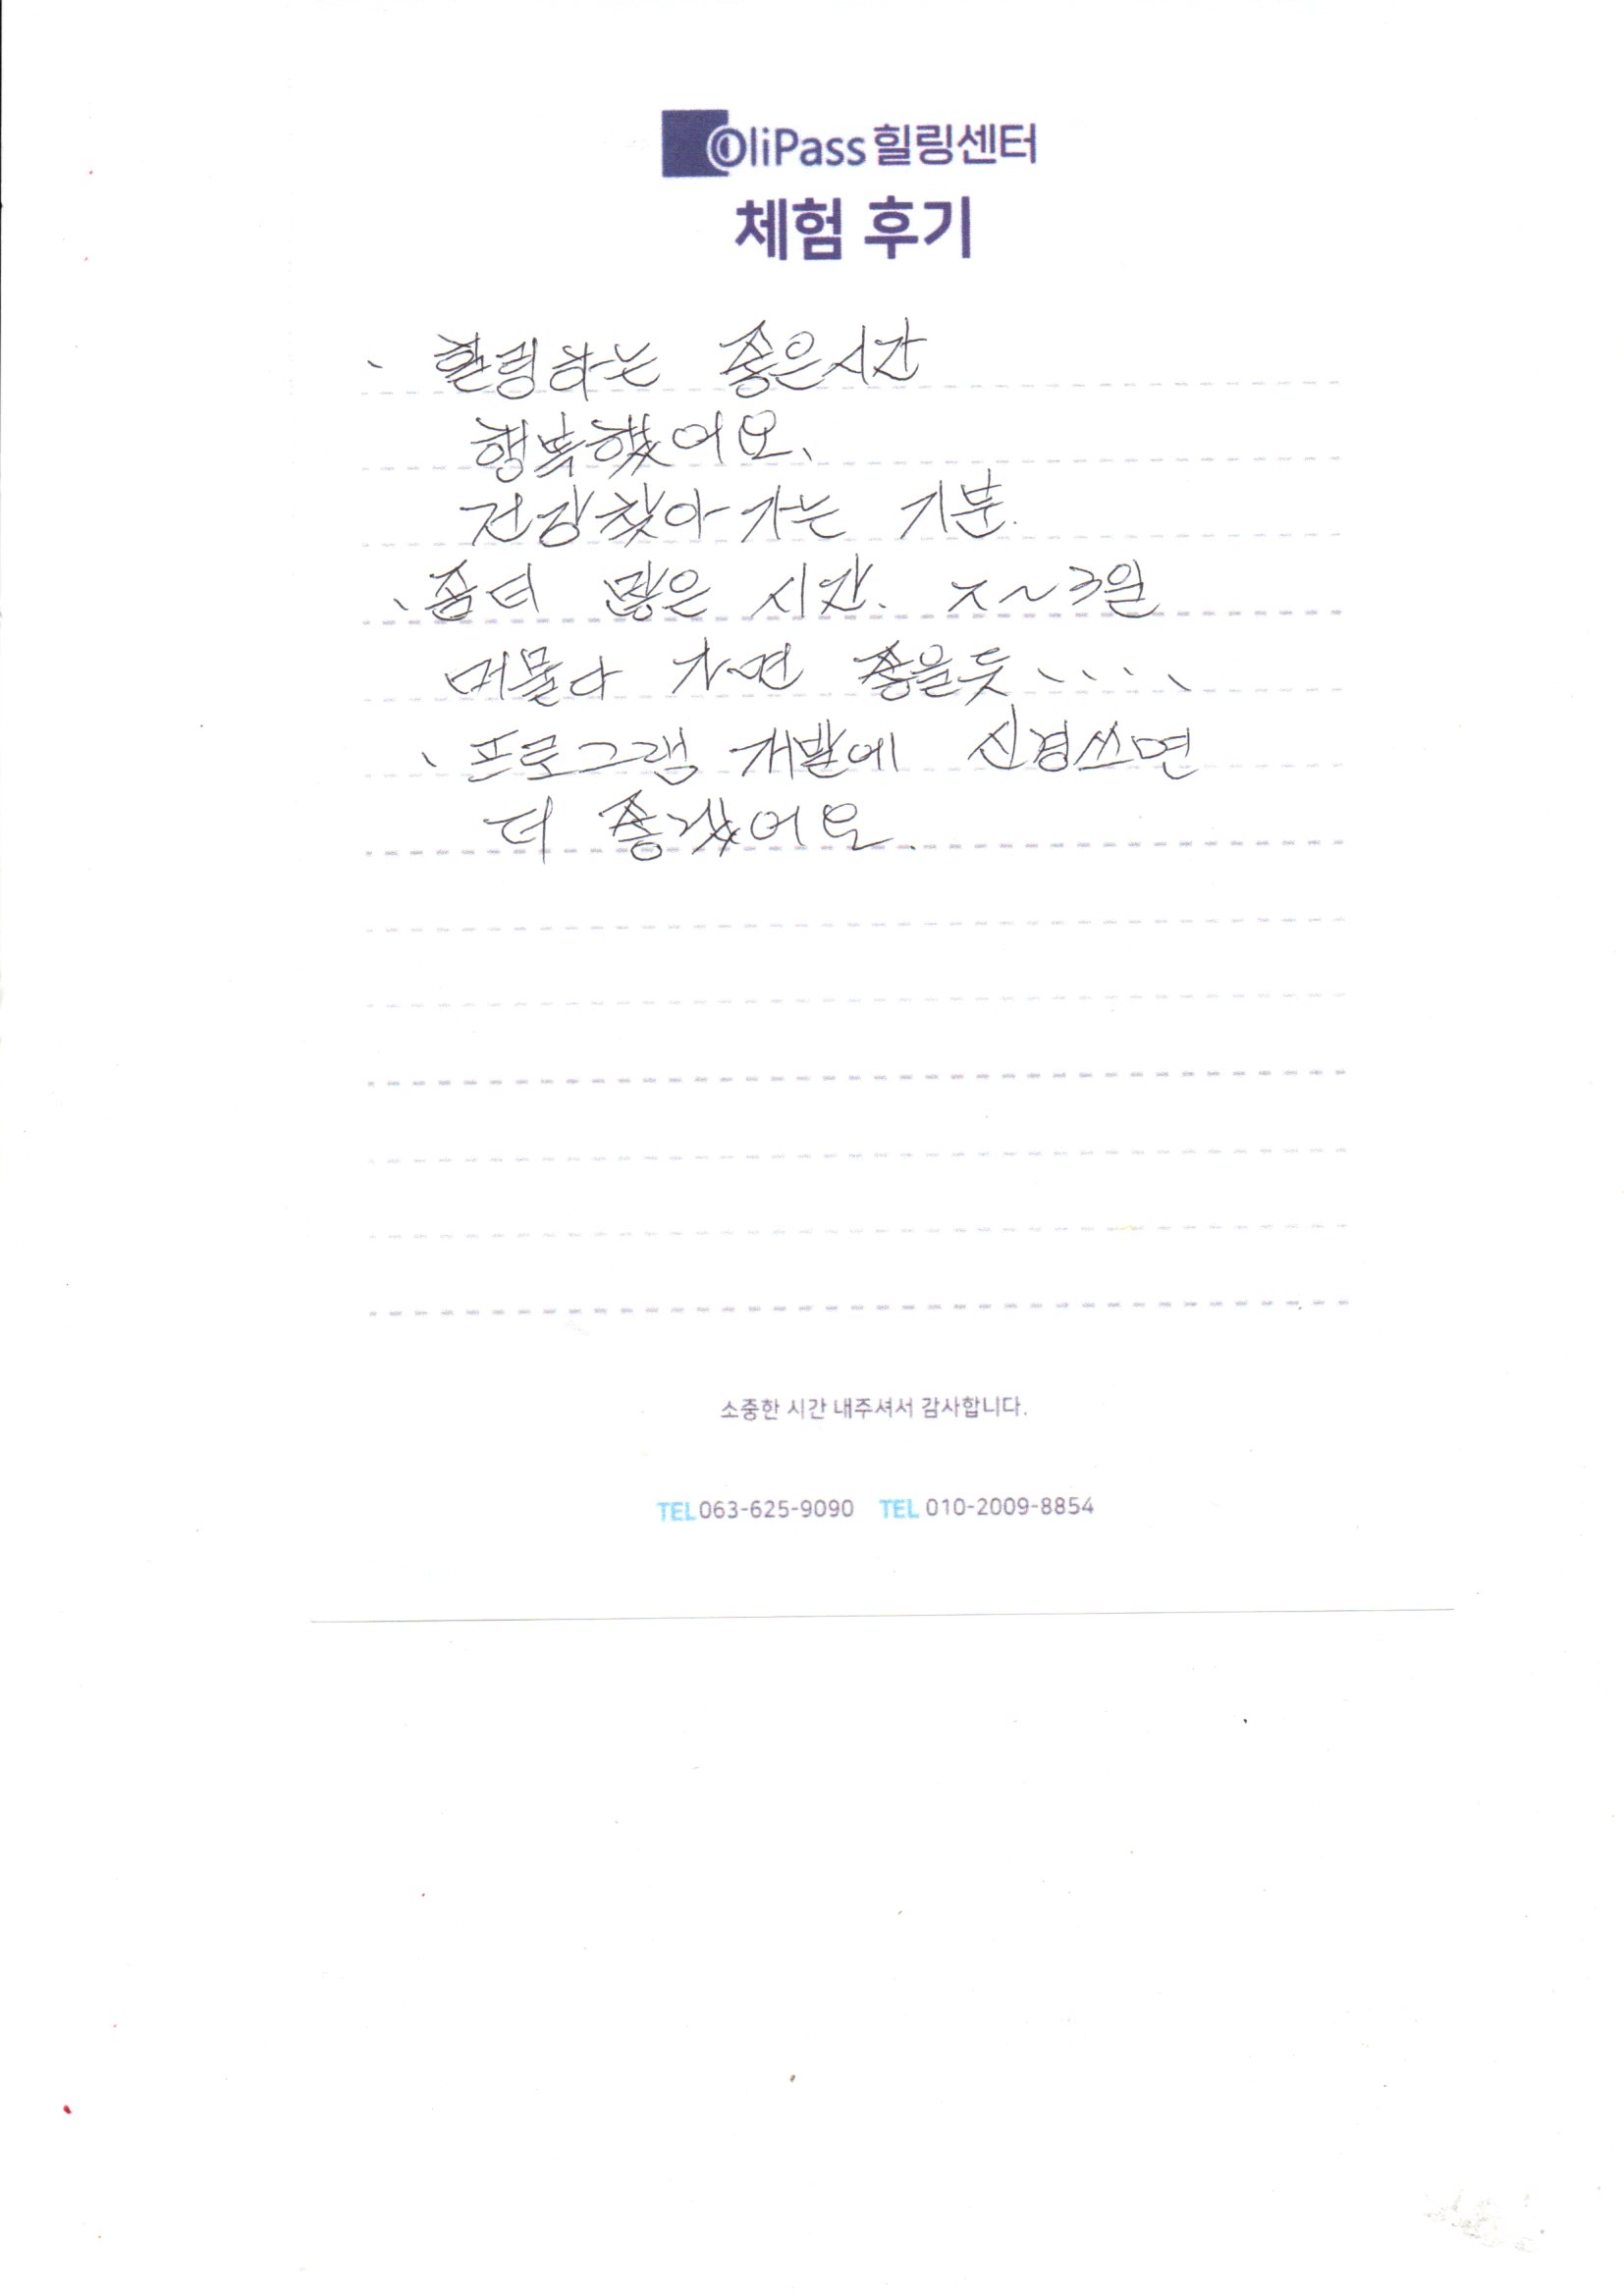 OliPass 힐링센터
체험 후기
、 힐링하는 좋은시간
행복했어요、
건강찾아가는 기분.
、좀더 많은 시간. 2~3일
머물다 가면 좋을듯、、、、、
、프로그램 개발에 신경쓰면
더 좋겠어요.
소중한 시간 내주셔서 감사합니다.
TEL 063-625-9090 TEL 010-2009-8854